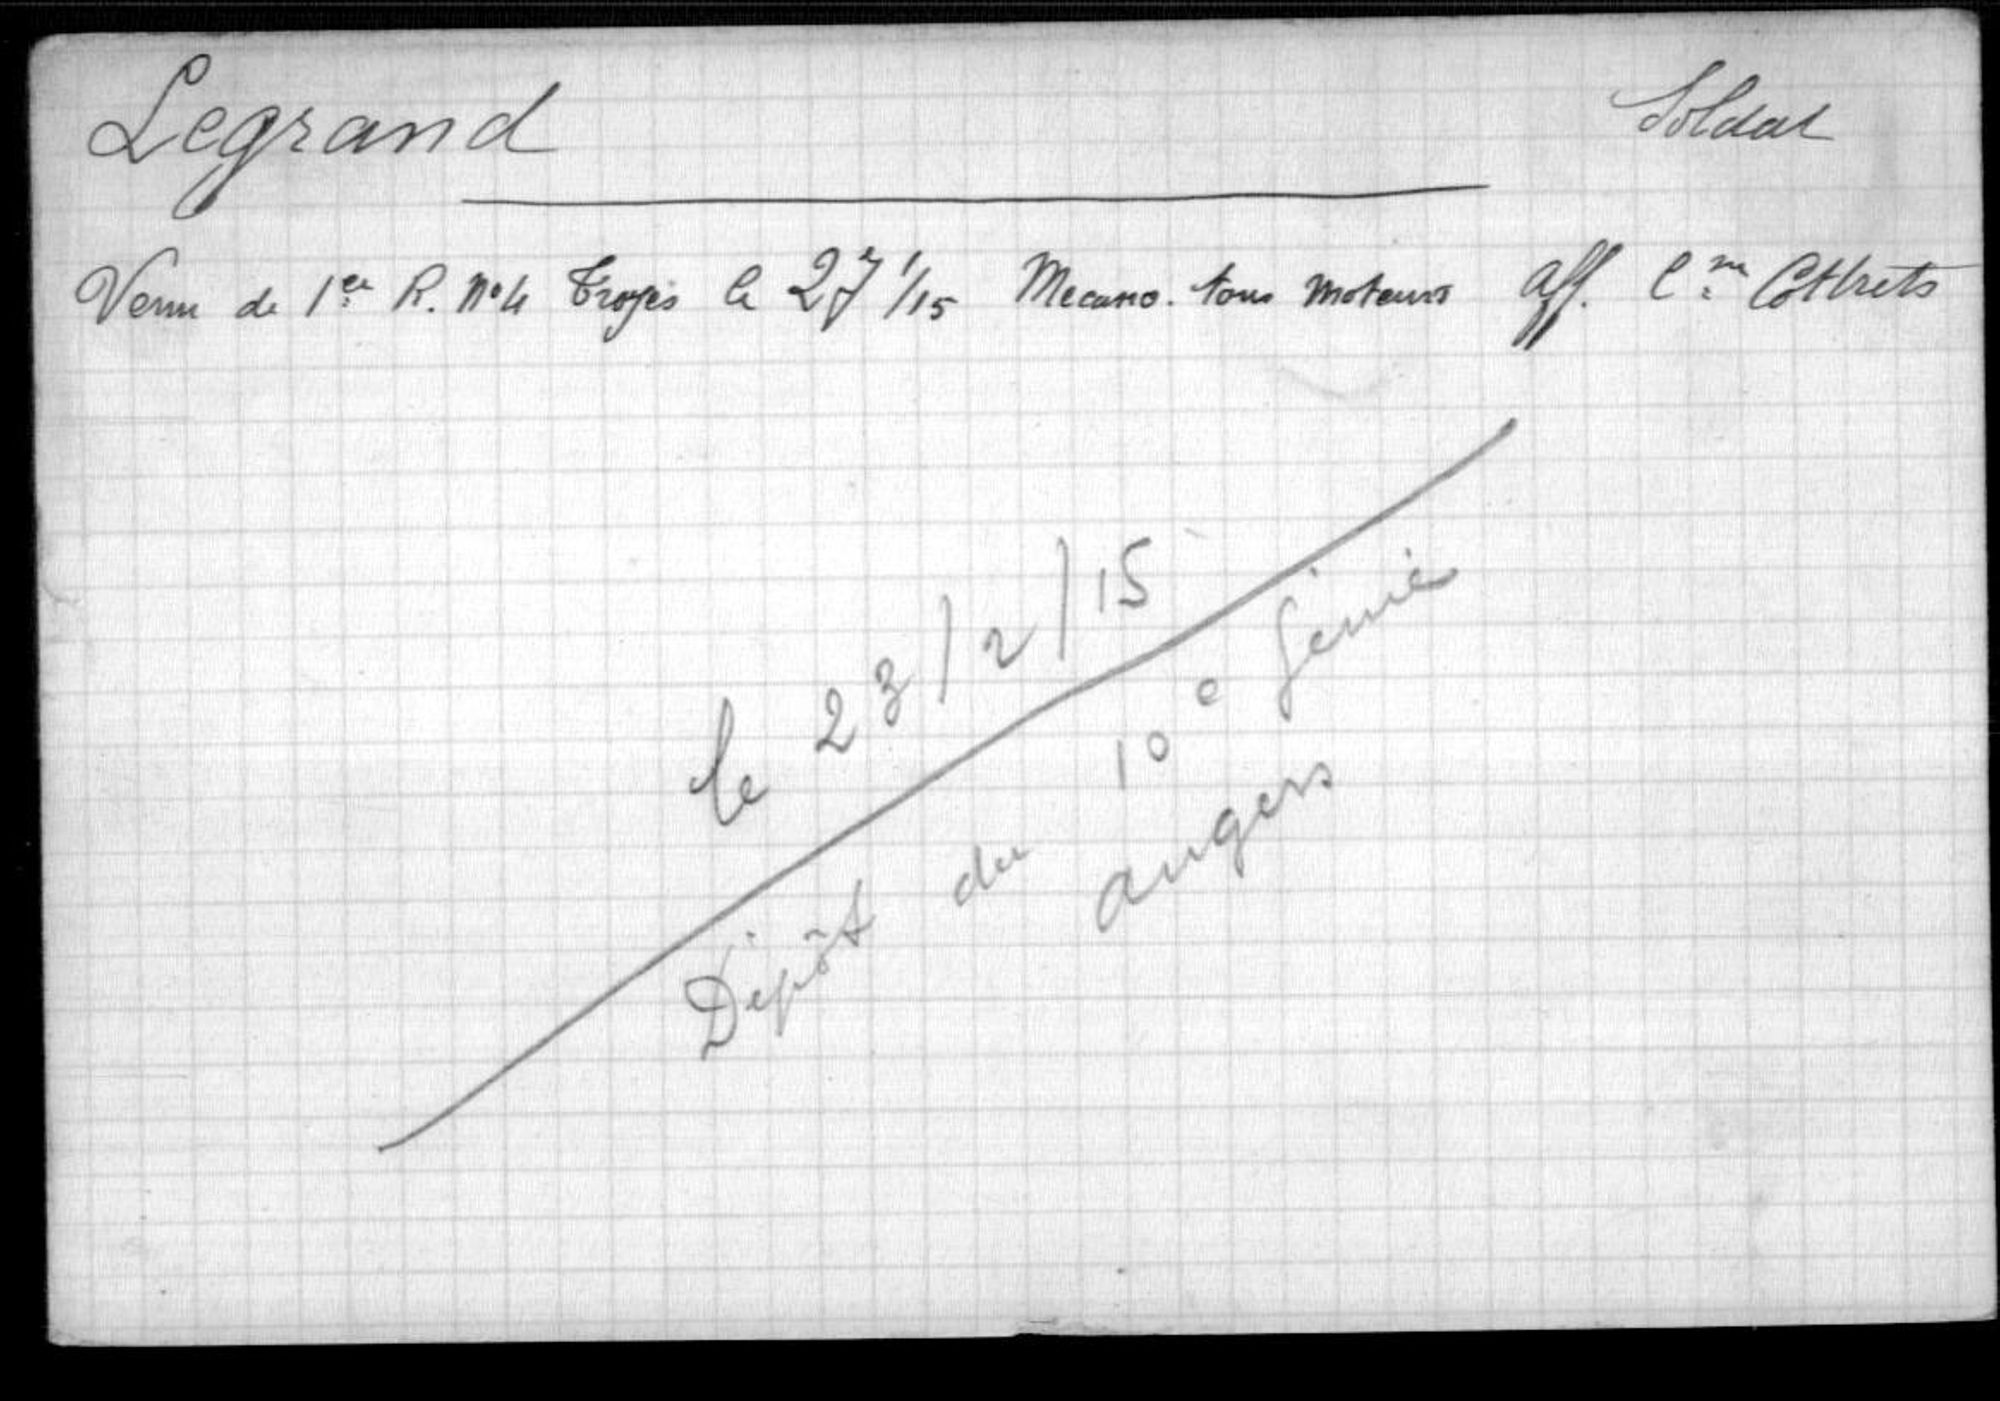 Legrand Soldat
Venu de 1er R. No 4 Troyes le 27 1/15 Mecano. tous moteurs aff. Cne Cottrets
le 23/2/15
Dépôt du 10e Génie
Angers